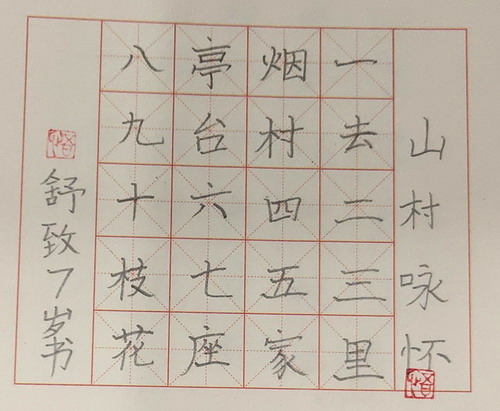 山村咏怀
一去二三里
烟村四五家
亭台六七座
八九十枝花
舒致7岁书